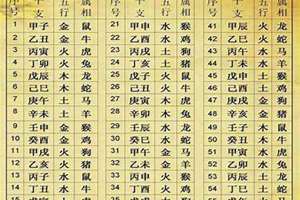 序号 干支 五行 属相 序号 干支 五行 属相 序号 干支 五行 属相
1 甲子 金 鼠 21 甲申 水 猴 41 甲辰 火 龙
2 乙丑 金 牛 22 乙酉 水 鸡 42 乙巳 火 蛇
3 丙寅 火 虎 23 丙戌 土 狗 43 丙午 水 马
4 丁卯 火 兔 24 丁亥 土 猪 44 丁未 水 羊
5 戊辰 木 龙 25 戊子 火 鼠 45 戊申 土 猴
6 己巳 木 蛇 26 己丑 火 牛 46 己酉 土 鸡
7 庚午 土 马 27 庚寅 木 虎 47 庚戌 金 狗
8 辛未 土 羊 28 辛卯 木 兔 48 辛亥 金 猪
9 壬申 金 猴 29 壬辰 水 龙 49 壬子 木 鼠
10 癸酉 金 鸡 30 癸巳 水 蛇 50 癸丑 木 牛
11 甲戌 火 狗 31 甲午 金 马 51 甲寅 水 虎
12 乙亥 火 猪 32 乙未 金 羊 52 乙卯 水 兔
13 丙子 水 鼠 33 丙申 火 猴 53 丙辰 土 龙
14 丁丑 水 牛 34 丁酉 火 鸡 54 丁巳 土 蛇